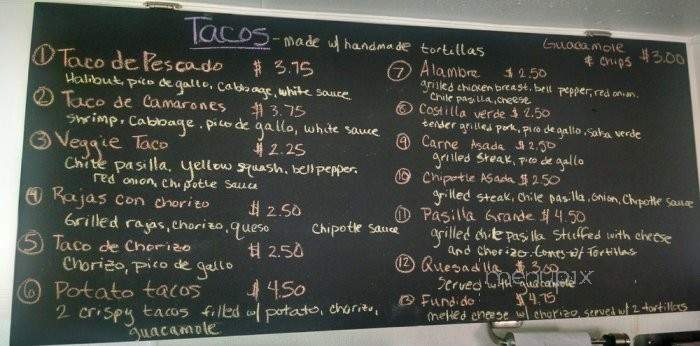 Tacos - made w/ handmade tortillas
Guacamole & chips $3.00
1 Taco de Pescado $3.75
Halibut, pico de gallo, cabbage, white sauce
2 Taco de Camarones $3.75
Shrimp, cabbage, pico de gallo, white sauce
3 Veggie Taco $2.25
Chile pasilla, yellow squash, bell pepper,
red onion, chipotle sauce
4 Rajas con chorizo $2.50
Grilled rajas, chorizo, queso Chipotle sauce
5 Taco de Chorizo $2.50
Chorizo, pico de gallo
6 Potato tacos $4.50
2 crispy tacos filled w/ potato, chorizo,
guacamole
7 Alambre $2.50
grilled chicken breast, bell pepper, red onion,
chile pasilla, cheese
8 Costilla verde $2.50
tender grilled pork, pico de gallo, salsa verde
9 Carne Asada $2.50
grilled steak, pico de gallo
10 Chipotle Asada $2.50
grilled steak, chile pasilla, onion, chipotle sauce
11 Pasilla Grande $4.50
grilled chile pasilla stuffed with cheese
and chorizo. Comes w/ Tortillas
12 Quesadilla $3.00
Served with guacamole
13 Fundido $4.75
melted cheese w/ chorizo, served w/ 2 tortillas
menupix